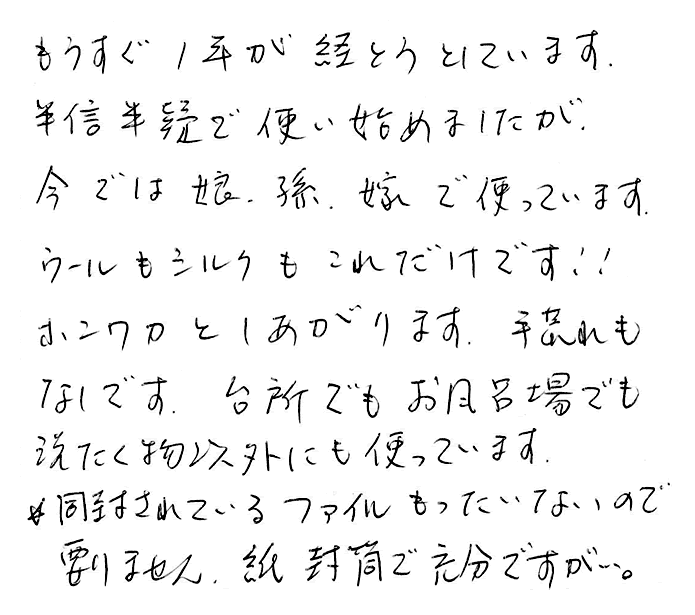 もうすぐ1年が経とうとしています.
半信半疑で使い始めましたが.
今では娘.孫.嫁で使っています.
ウールもシルクもこれだけです!!
ホンワカとしあがります.手荒れも
なしです.台所でもお風呂場でも
洗たく物以外にも使っています.
*同封されているファイルもったいないので
要りません.紙封筒で充分ですが…。